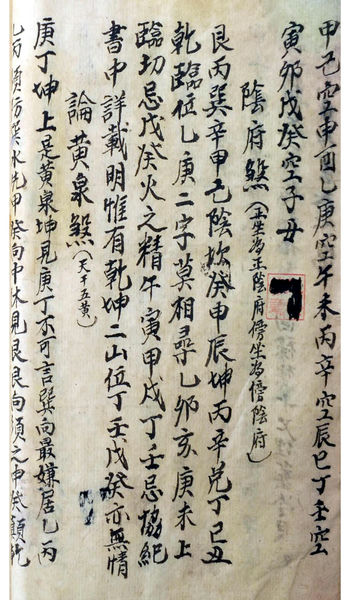 甲己空申酉乙庚空午未丙辛空辰巳丁壬空
寅卯戊癸空子丑
陰府煞(正坐為正陰府傍坐為傍陰府)
艮丙巽辛甲己陰坎癸申辰坤丙辛兌丁巳丑
乾臨位乙庚二字莫相尋乙卯亥庚未上
臨切忌戊癸火之精午寅甲戌丁壬忌協紀
書中詳載明惟有乾坤二山位丁壬戊癸亦無情
論黃泉煞(天干五黃)
庚丁坤上是黃泉坤見庚丁亦可言巽向最嫌居乙丙
乙丙須防巽水先甲癸向中休見艮艮向須之甲癸顛乾